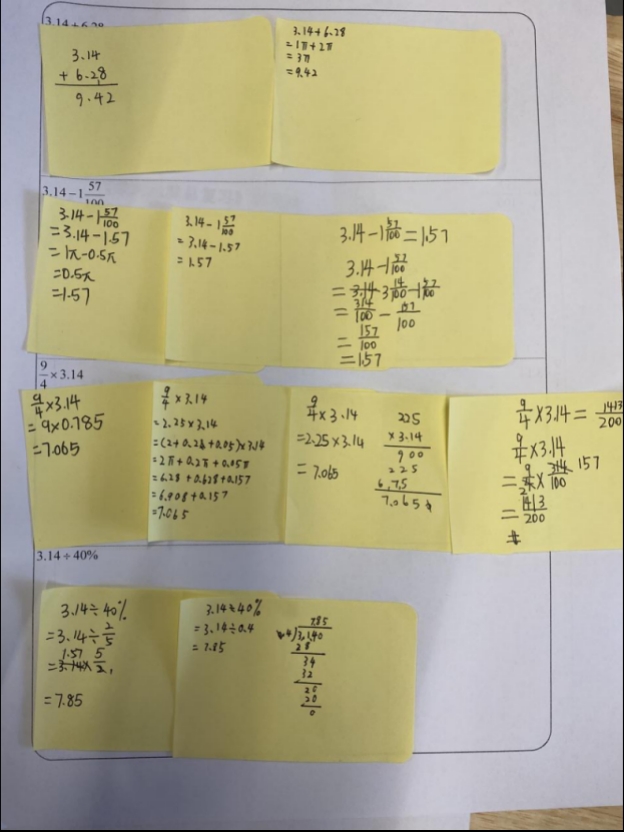 3.14+6.28
3.14
+ 6.28
9.42
3.14+6.28
=1π+2π
=3π
=9.42
3.14−1 57/100
3.14-1 57/100
=3.14-1.57
=1π-0.5π
=0.5π
=1.57
3.14-1 57/100
=3.14-1.57
=1.57
3.14-1 57/100=1.57
3.14-1 57/100
=3.14 3 14/100-1 57/100
=314/100-157/100
=157/100
=1.57
9/4×3.14
9/4×3.14
=9×0.785
=7.065
9/4×3.14
=2.25×3.14
=2π+0.2π+0.05π
=6.28+0.628+0.157
=6.908+0.157
=7.065
9/4×3.14
=2.25×3.14
=7.065
225
×3.14
900
225
675
7.065
9/4×3.14=1413/200
9/4×3.14
=1413/200
3.14÷40%
3.14÷40%
=3.14÷2/5
1.57
=3.14×5/2
=7.85
3.14÷40%
=3.14÷0.4
=7.85
7.85
28
34
32
20
20
0